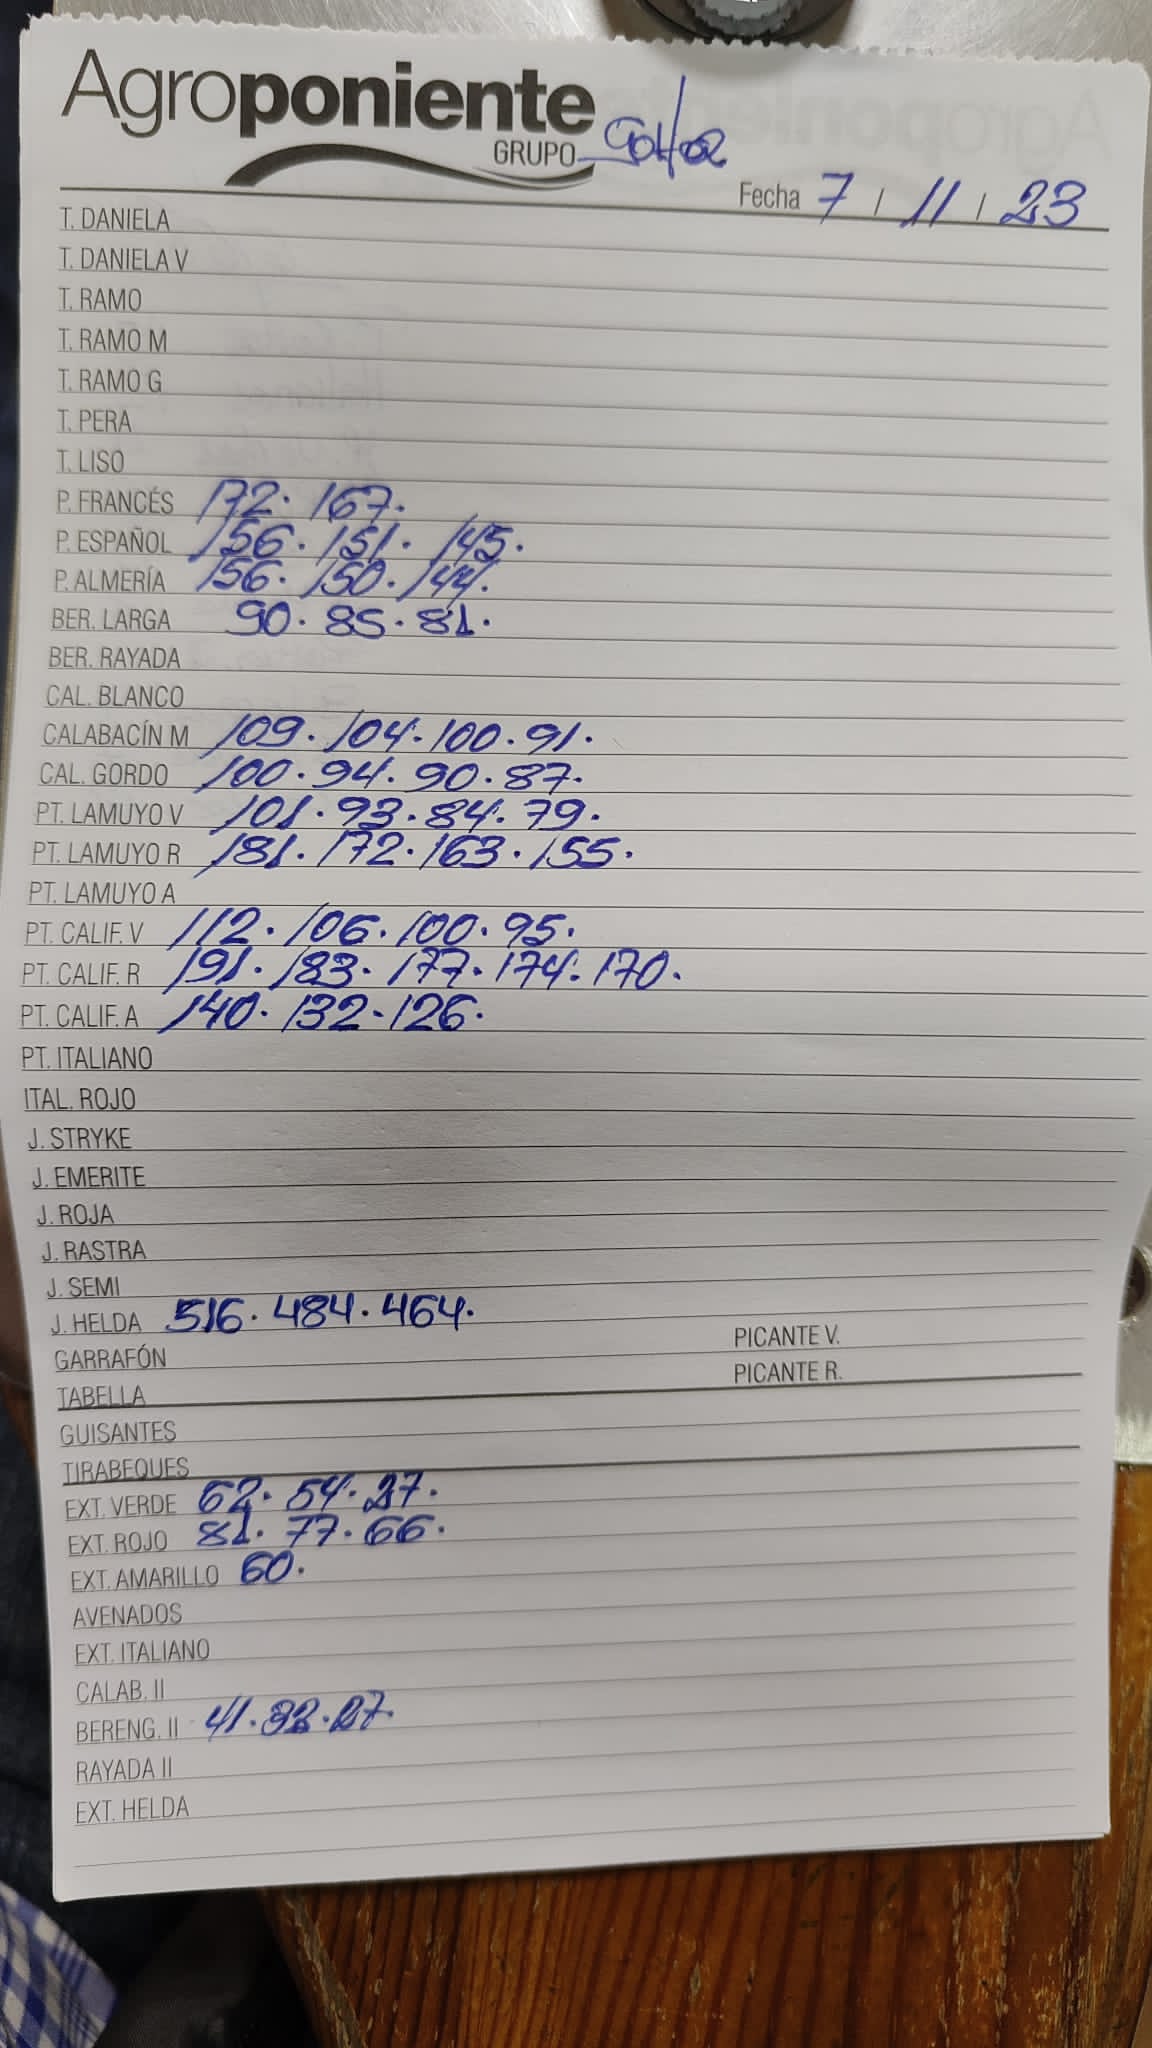 Agroponiente
GRUPO
Fecha 7 / 11 / 23
T. DANIELA
T. DANIELA V
T. RAMO
T. RAMO M
T. RAMO G
T. PERA
T. LISO
P. FRANCÉS 172. 167.
P. ESPAÑOL 156. 151. 145.
P. ALMERÍA 156. 150. 144.
BER. LARGA 90. 85. 81.
BER. RAYADA
CAL. BLANCO
CALABACÍN M 109. 104. 100. 91.
CAL. GORDO 100. 94. 90. 87.
PT. LAMUYO V 101. 93. 84. 79.
PT. LAMUYO R 181. 172. 163. 155.
PT. LAMUYO A
PT. CALIF. V 112. 106. 100. 95.
PT. CALIF. R 191. 183. 177. 174. 170.
PT. CALIF. A 140. 132. 126.
PT. ITALIANO
ITAL. ROJO
J. STRYKE
J. EMERITE
J. ROJA
J. RASTRA
J. SEMI
J. HELDA 516. 484. 464.
GARRAFÓN PICANTE V.
TABELLA PICANTE R.
GUISANTES
TIRABEQUES
EXT. VERDE 62. 54. 27.
EXT. ROJO 81. 77. 66.
EXT. AMARILLO 60.
AVENADOS
EXT. ITALIANO
CALAB. II
BERENG. II 41. 32. 27.
RAYADA II
EXT. HELDA